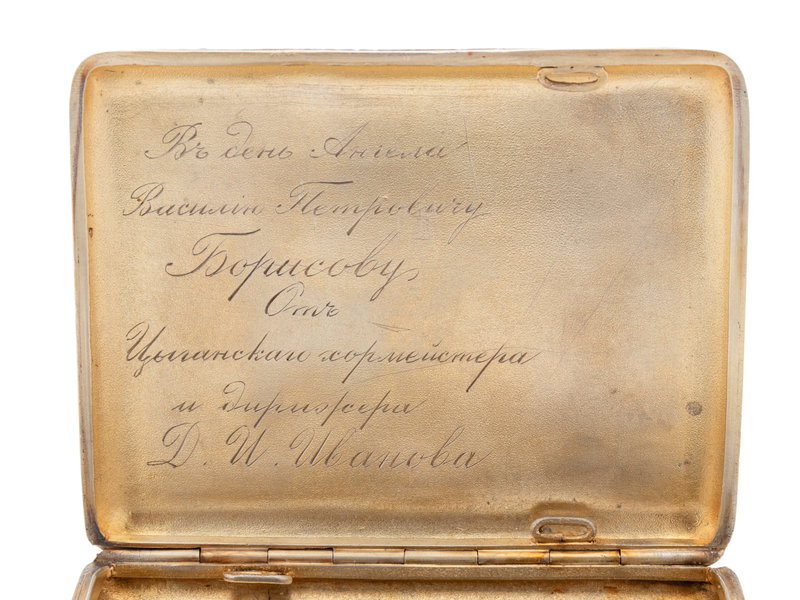 Въ день Ангела
Василiю Петровичу
Борисову
Отъ
Цыганскаго хормейстера
и дирижера
Д. И. Иванова